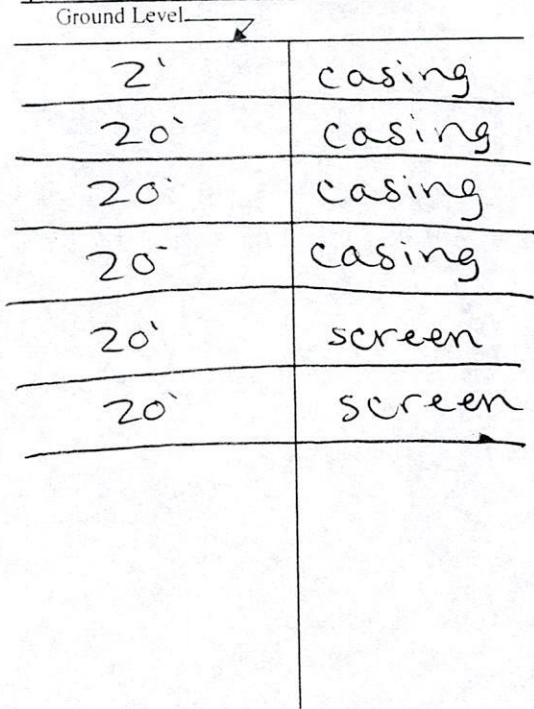 Ground Level
2' casing
20' casing
20' casing
20' casing
20' screen
20' screen